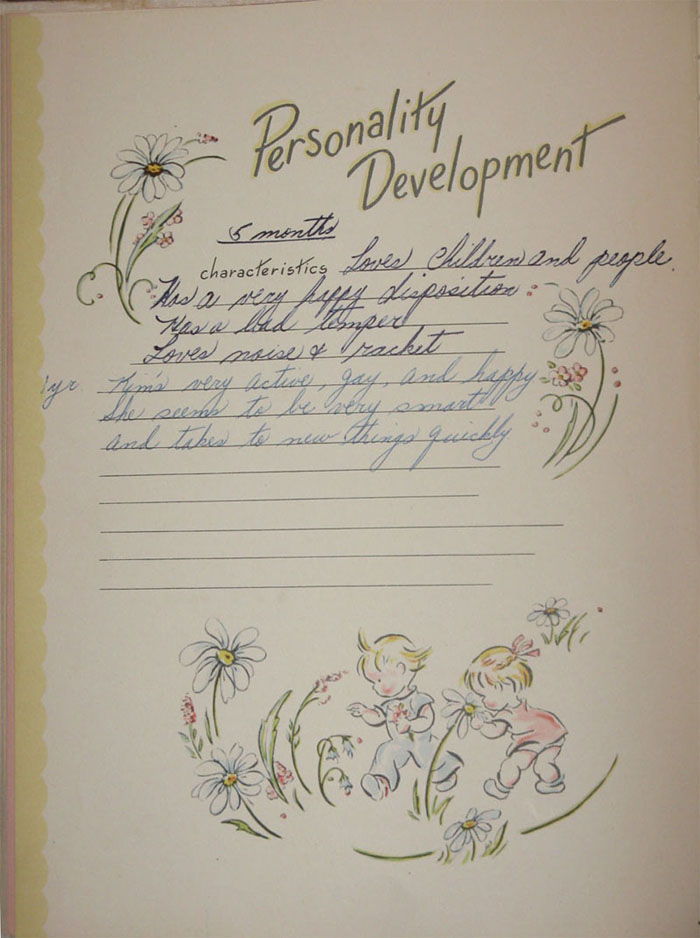 Personality
Development
5 months
characteristics Loves children and people.
Has a very happy disposition
Has a bad temper
Loves noise & racket
1 yr. Kim's very active, gay, and happy
She seems to be very smart
and takes to new things quickly